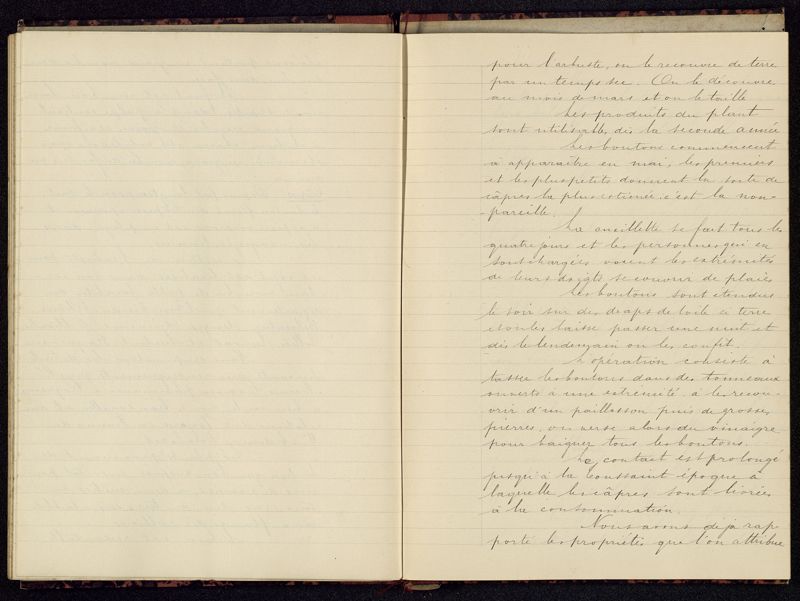 pour l'arbuste, on le recouvre de terre
par un temps sec. On le découvre
au mois de mars et on le taille
Les produits du plant
sont utilisables dès la seconde année
Les boutons commencent
à apparaître en mai, les premiers
et les plus petits donnent la sorte de
câpres la plus estimée, c'est la non-
pareille.
La cueillette se fait tous les
quatre jours et les personnes qui en
sont chargées voient les extrémités
de leurs doigts se couvrir de plaies
Les boutons sont étendus
le soir sur des draps de toile à terre
et on les laisse passer une nuit et
dès le lendemain on les confit.
L'opération consiste à
tasser les boutons dans des tonneaux
ouverts à une extrémité, à les recou-
vrir d'un paillasson puis de grosses
pierres, on verse alors du vinaigre
pour baigner tous les boutons.
Le contact est prolongé
jusqu'à la Toussaint époque à
laquelle les câpres sont livrées
à la consommation.
Nous avons déjà rap-
porté les propriétés que l'on attribue